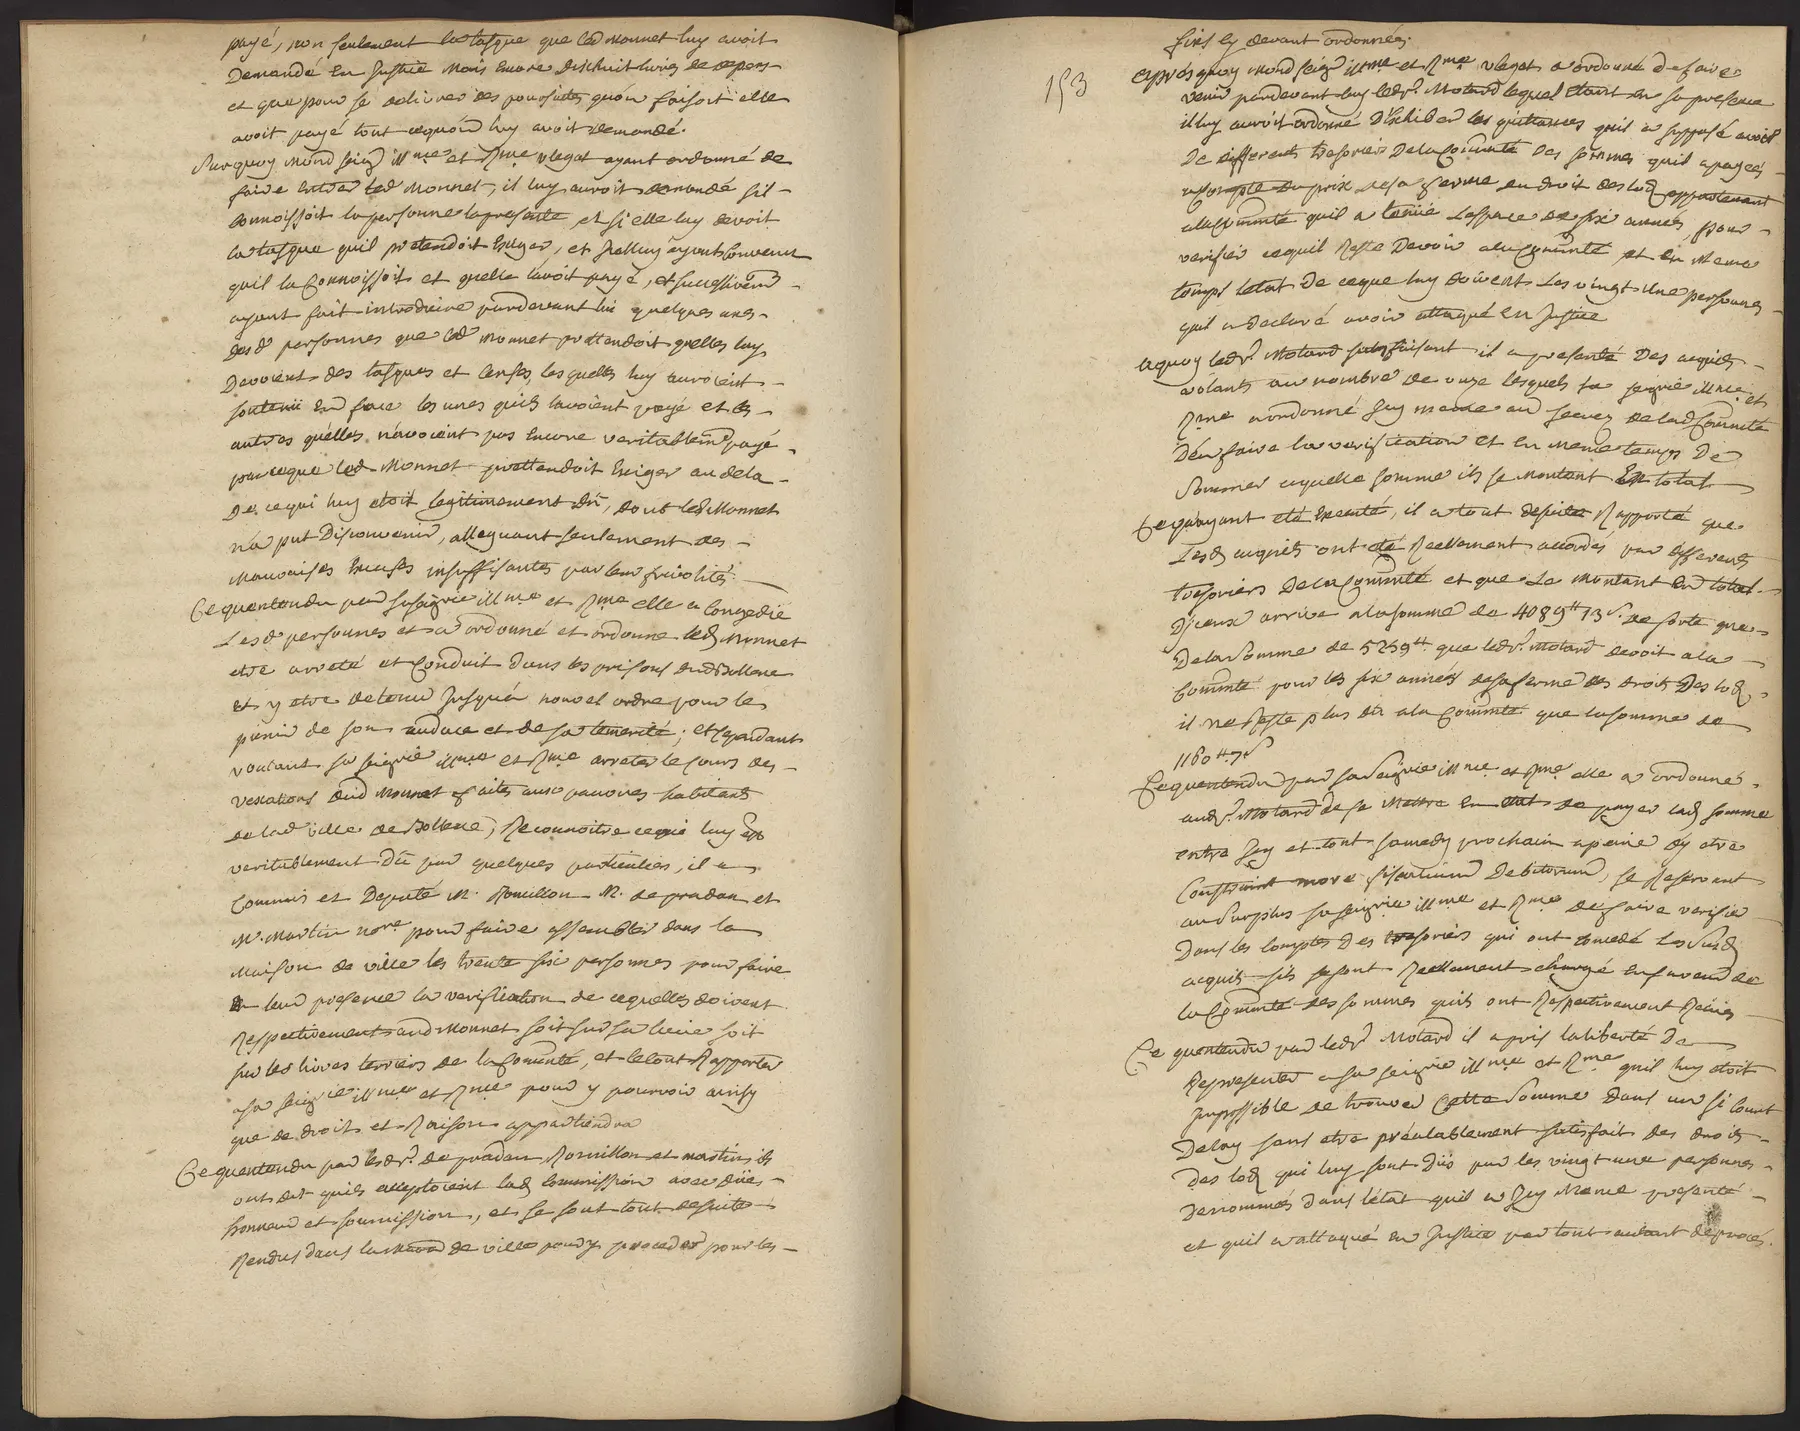 payé, non seulement la tasque que led Monnet luy avoit
Demandé En Justice Mais Encore Dixhuit livres de depens
et que pour se delivrer des poursuites qu'on faisoit elle
avoit payé tout cequon luy avoit demandé.
Surquoy Mond seigr illme et Rme vlegat ayant ordonné de
faire Entrer led Monnet, il luy auroit demandé sil
Connoissoit la personne la presente, et si elle luy devoit
la tasque quil pretendoit Exiger, et Jcelluy ayant Convenu
quil la Connoissoit et quelle lavoit payé, et successivemt
ayant fait introduire pardevant lui quelques unes
desd personnes que led Monnet prettendoit quelles luy
Devoient des tasques et Censes, lesquelles luy auroient
soutenü En face les unes quils lavoient payé et les
autres quelles n'avoient pas Encore veritablemt payé
parceque led Monnet prettendoit Exiger audela
De cequi luy etoit legitimement dû, dont led Monnet
n'a put Disconvenir, alleguant seulement des
Mauvaises Excuses insuffisantes par leur frivolités
Cequentendu par sa seigrie illme et Rme elle a Congedié
Lesd personnes et a ordonné et ordonne led Monnet
etre arreté et Conduit Dans les prisons dud Bollene
et y etre detenu Jusqu'a nouvel ordre pour le
punir de son audace et de sa temerité; et Cependant
voulant sa seigrie illme et Rme arreter le Cours des
vexations dud Monnet faites aux pauvres habitants
de lad ville de Bollene, Reconnoitre cequi luy est
veritablement Dû par quelques particuliers, il a
Commis et Deputé M. Roumillon M. de pradan et
Mr. Martin nore pour faire assembler dans la
Maison de ville les trente six personnes pour faire
En leur presence la verification de cequelles doivent
Respectivement aud Monnet soit sur sa lieve soit
sur les livres terriers de la Commté, et letout Rapporter
a sa seigrie illme et Rme pour y pourvoir ainsy
que de droit et Raison appartiendra
Cequentendu par lesd rs. De pradan, Roumillon et martin ils
ont dit quils acceptoient lad Commission avec düe
honneur et soumission, et se sont tout desuite
Rendus dans la Maison de ville pour y proceder pour les
153
fins cy devant ordonnées.
Apres quoy Mond seigr illme et Rme vlegat a ordonné de faire
venir pardevant luy led sr. Motard lequel Etant En sa presence
il luy auroit ordonné D'Exhiber les quittances quil a supposé avoir
De differents tresoriers De la Commté des sommes quil a payées
acompte du prix de sa ferme du droit des lods appartenant
a la Commté quil a tenüe Lespace de six années, pour
verifier cequil Reste Devoir a la Commté et En Meme
temps letat De ceque luy doivent Les vingt une personnes
quil a declaré avoir attaqué En Justice
aquoy led sr. Motard satisfaisant il a presenté Des acquits
volants au nombre De onze lesquels sa seigrie illme et
Rme a ordonné Jcy Meme au secrre de lad Commté
D'En faire la verification et En Meme temps De
sommer a quelle somme ils se Montent En total
Cequayant eté Executé, il a tout desuite Rapporté que
Lesd acquits ont eté Reellement accordés par differents
tresoriers De la Commté et que Le Montant En total
D'iceux arrive a la somme de 4089tt 13 s de sorte que
De la somme de 5259tt que led sr. Motard devoit a la
Commté pour les six années de sa ferme des droits Des lods
il ne Reste plus dû a la Commté que la somme de
1160tt 7 s
Cequentendu par sa seigrie illme et Rme elle a ordonné
aud sr. Motard de se Mettre En etat de payer lad somme
entre Jcy et tout samedy prochain a peine dy etre
Constraint more fiscalium Debitorum, se Reservant
au surplus sa seigrie illme et Rme de faire verifier
Dans les Comptes Des tresoriers qui ont concedé Lesd
acquits sils se sont Reellement chargé En faveur de
la Commté des sommes quils ont Respectivement Recües
Ce quentendu par led sr. Motard il a pris la liberté De
Representer a sa seigrie illme et Rme quil luy etoit
Jmpossible de trouver Cette somme Dans un si Court
Delay sans etre préalablement satisfait des droits
Des lods qui luy sont Düs par les vingt une personnes
Denommés dans l'état quil a Jcy Meme presenté
et quil a attaqué En Justice par tout autant de procés.